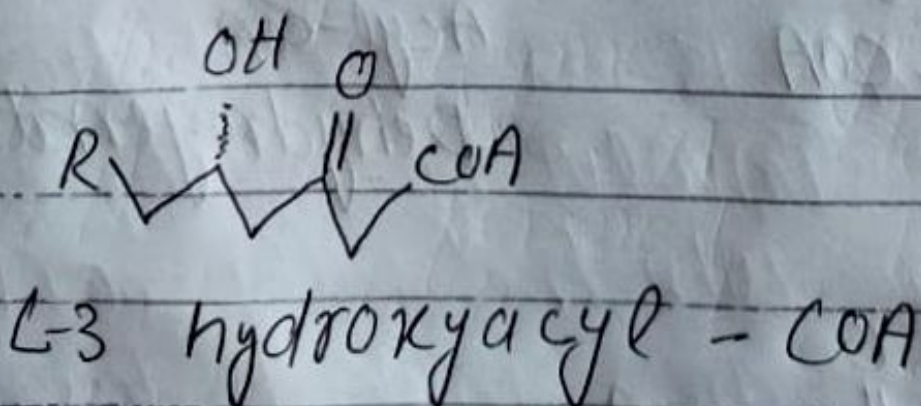 OH
O
R
COA
L-3 hydroxyacyl - COA